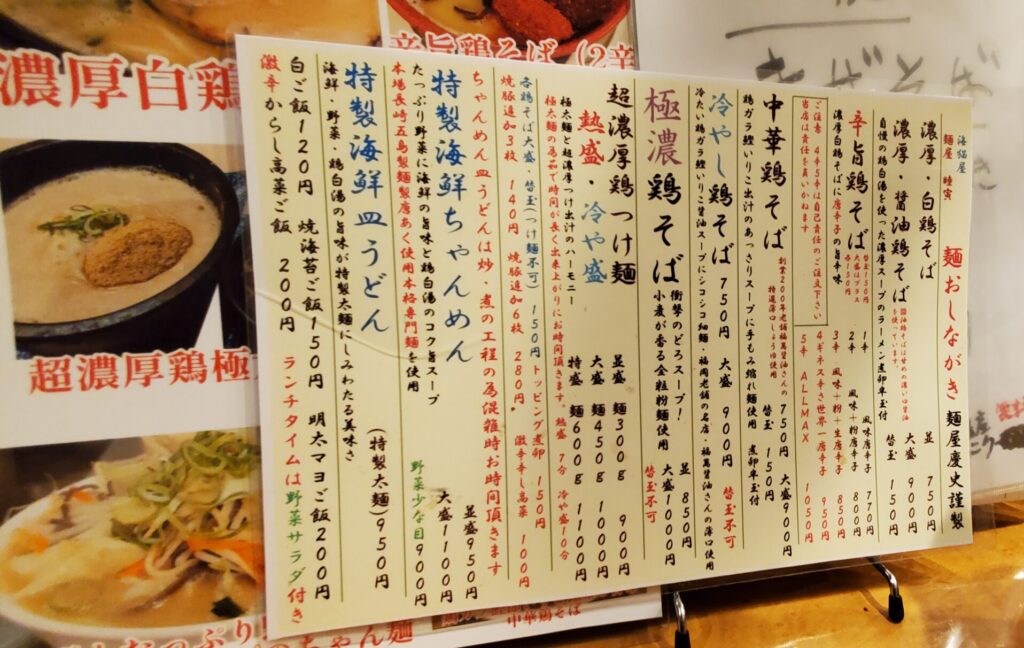 海猫屋
麺屋 睦実
麺おしながき
麺屋慶史謹製
濃厚・白鶏そば 並 750円
濃厚・醤油鶏そば 大盛 900円
自慢の鶏白湯を使った濃厚スープのラーメン煮卵半玉付 替玉 150円
辛旨鶏そば
替玉150円
大盛はプラス
各150円
濃厚白鶏そばに唐辛子の旨辛味
1辛 風味唐辛子 770円
2辛 風味+粉唐辛子 800円
3辛 風味+粉+生唐辛子 850円
4辛ギネス辛さ世界一唐辛子 950円
5辛 ALLMAX 1050円
ご注意 4辛5辛は自己責任のご注文下さい
当店は責任を負いかねます
中華鶏そば 750円 大盛900円
創業200年老舗福萬醤油さんの
特選薄口しょうゆ使用
替玉 150円
鶏ガラ鰹いりこ出汁のあっさりスープに手もみ縮れ麺使用 煮卵半玉付
冷やし鶏そば 750円 大盛 900円 替玉不可
冷たい鶏ガラ鰹いりこ醤油スープにシコシコ細麺・福岡老舗の名店・福萬醤油さんの薄口使用
極濃鶏そば
衝撃のどろスープ!
小麦が香る全粒粉麺使用
並 850円
大盛1000円
替玉不可
超濃厚鶏つけ麺
熱盛・冷や盛
並盛 麺300g 900円
大盛 麺450g 1000円
特盛 麺600g 1100円
極太麺と超濃厚つけ出汁のハーモニー
極太麺の為茹で時間が長く出来上がりにお時間頂きます。熱盛 7分 冷や盛10分
各鶏そば大盛・替玉(つけ麺不可)150円 トッピング煮卵 150円
焼豚追加3枚 140円 焼豚追加6枚 280円 激辛辛し高菜 100円
ちゃんめん皿うどんは炒・煮の工程の為混雑時お時間頂きます
本場長崎五島製麺製唐あく使用本格専門麺を使用
特製海鮮ちゃんめん
並盛950円
大盛1100円
野菜少な目900円
たっぷり野菜に海鮮の旨味と鶏白湯のコク旨スープ
特製海鮮皿うどん (特製太麺)950円
海鮮・野菜・鶏白湯の旨味が特製太麺にしみわたる美味さ
白ご飯120円 焼海苔ご飯150円 明太マヨご飯200円
激辛からし高菜ご飯 200円 ランチタイムは野菜サラダ付き
濃厚白鶏
辛旨鶏そば(2辛
超濃厚鶏極
中華鶏そば